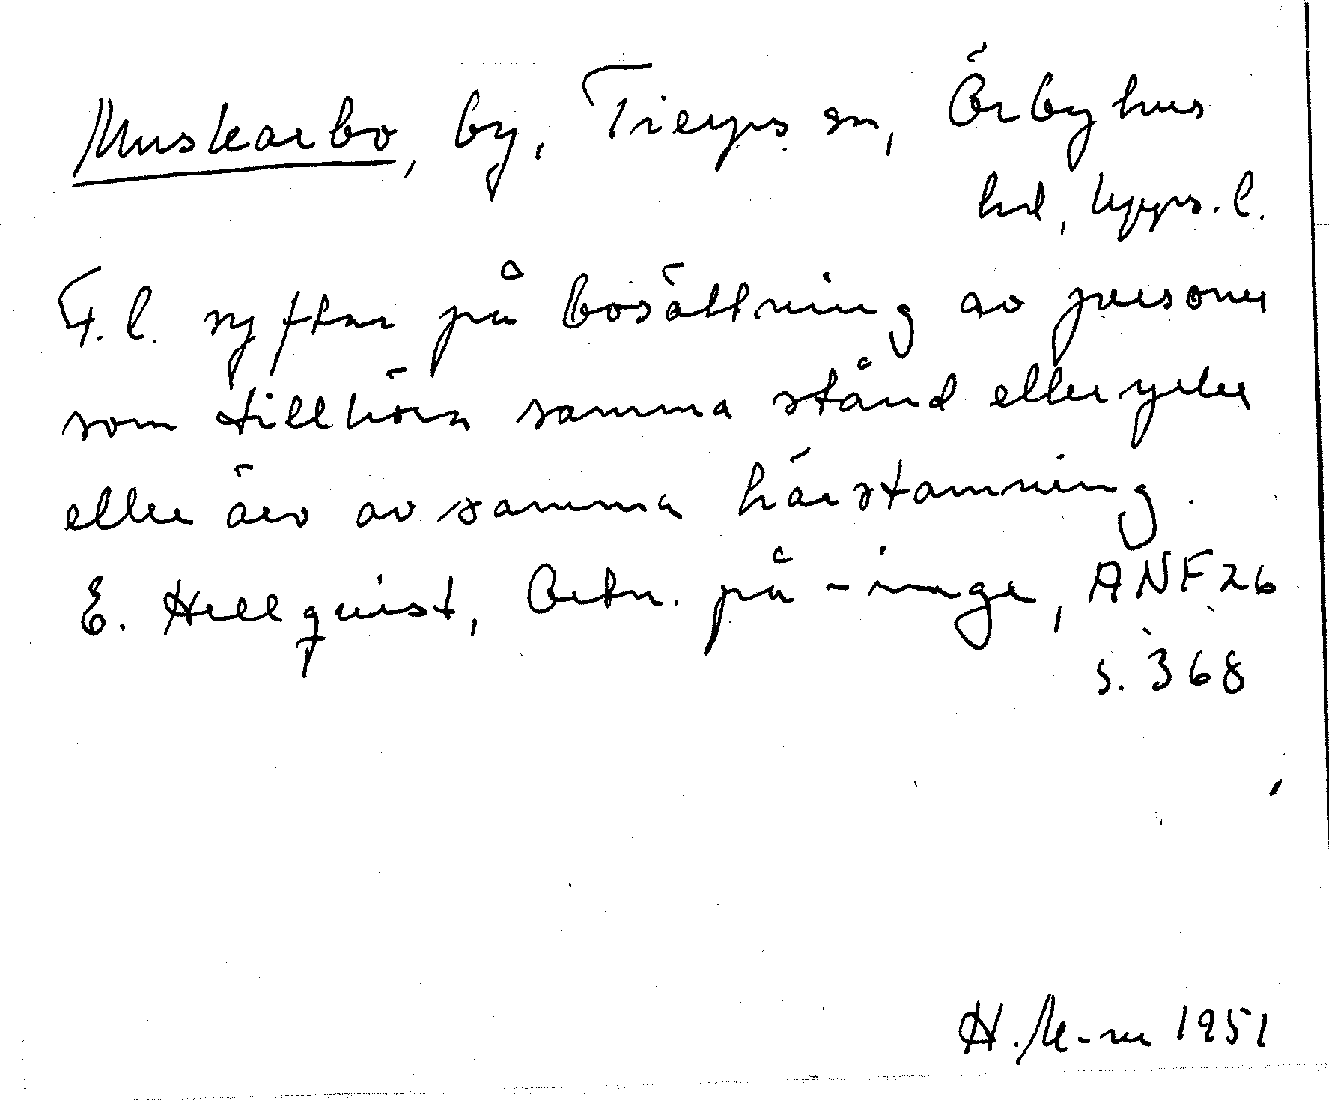 Muskarbo, by, Tierps sn, Örbyhus
hd, Upps. l.
F. l. syftar på bosättning av personer
som tillhöra samma stånd eller yrke
eller äro av samma härstamning.
E. Hellquist, Ortn. på -inge, ANF 26
s. 368
1951